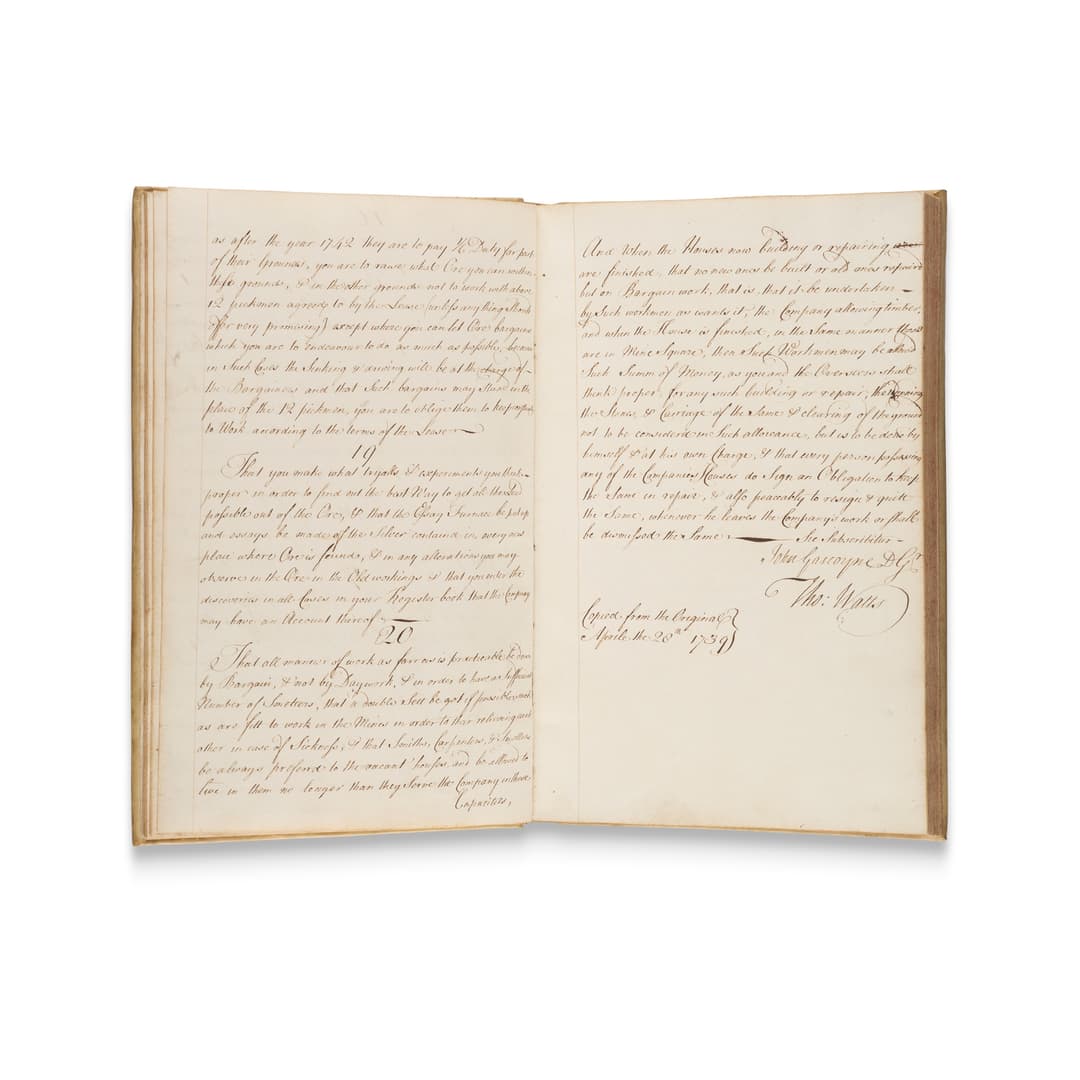 as after the year 1742 they are to pay ⅙ Duty for part
of their Grounds, you are to raise what Ore you can within
these grounds, & in the other grounds not to work with above
12 pickmen agreed to by the Lease (unless any thing should
offer very promising) except where you can let Ore bargains
which you are to endeavour to do as much as possible, because
in Such Cases the Sinking & driving will be at the charge of
the Bargainers and that Such bargains may Stand in the
place of the 12 pickmen, you are to oblige them to keep
to Work according to the terms of the Lease
19
That you make what tryals & experiments you think
proper in order to find out the best Way to get all the Lead
possible out of the Ore, & that the Essay Furnace be put up
and essays be made of the Silver contain'd in every new
place where Ore is found, & in any alterations you may
observe in the Ore in the Old workings & that you enter the
discoveries in all Cases in your Register book that the Company
may have an Account thereof
20
That all manner of work as farr as is practicable be done
by Bargain, & not by Daywork, & in order to have a Sufficient
Number of Smelters, that a double Sett be got if possible such
as are fitt to work in the Mines in order to their relieving each
other in case of Sickness, & that Smiths, Carpenters, & Smelters
be always preferd to the vacant houses, and be allowed to
live in them no longer than they Serve the Company in those
Capacities,
And When the Houses now building or repairing
are finished, that no new ones be built or old ones repaird
but on Bargain work, that is, that it be undertaken
by Such workmen as wants it, the Company allowing timber,
and when the House is finished, in the Same manner those
are in Mine Square, then Such Workmen may be allowd
Such Summ of Money, as you and the Overseers shall
think proper, for any such building or repair, the
the Stones, & Carriage of the Same & clearing of the ground
not to be considerd in Such allowance, but is to be done by
himself & at his own Charge, & that every person possessing
any of the Companies Houses do Sign an Obligation to keep
the Same in repair, & also peaceably to resign & quitt
the Same, whenever he leaves the Company's work or shall
be dismissed the Same. Sic Subscribitur
John Gascoyne D Gr
Tho: Watts
Copied from the Original
Aprile the 28th 1739